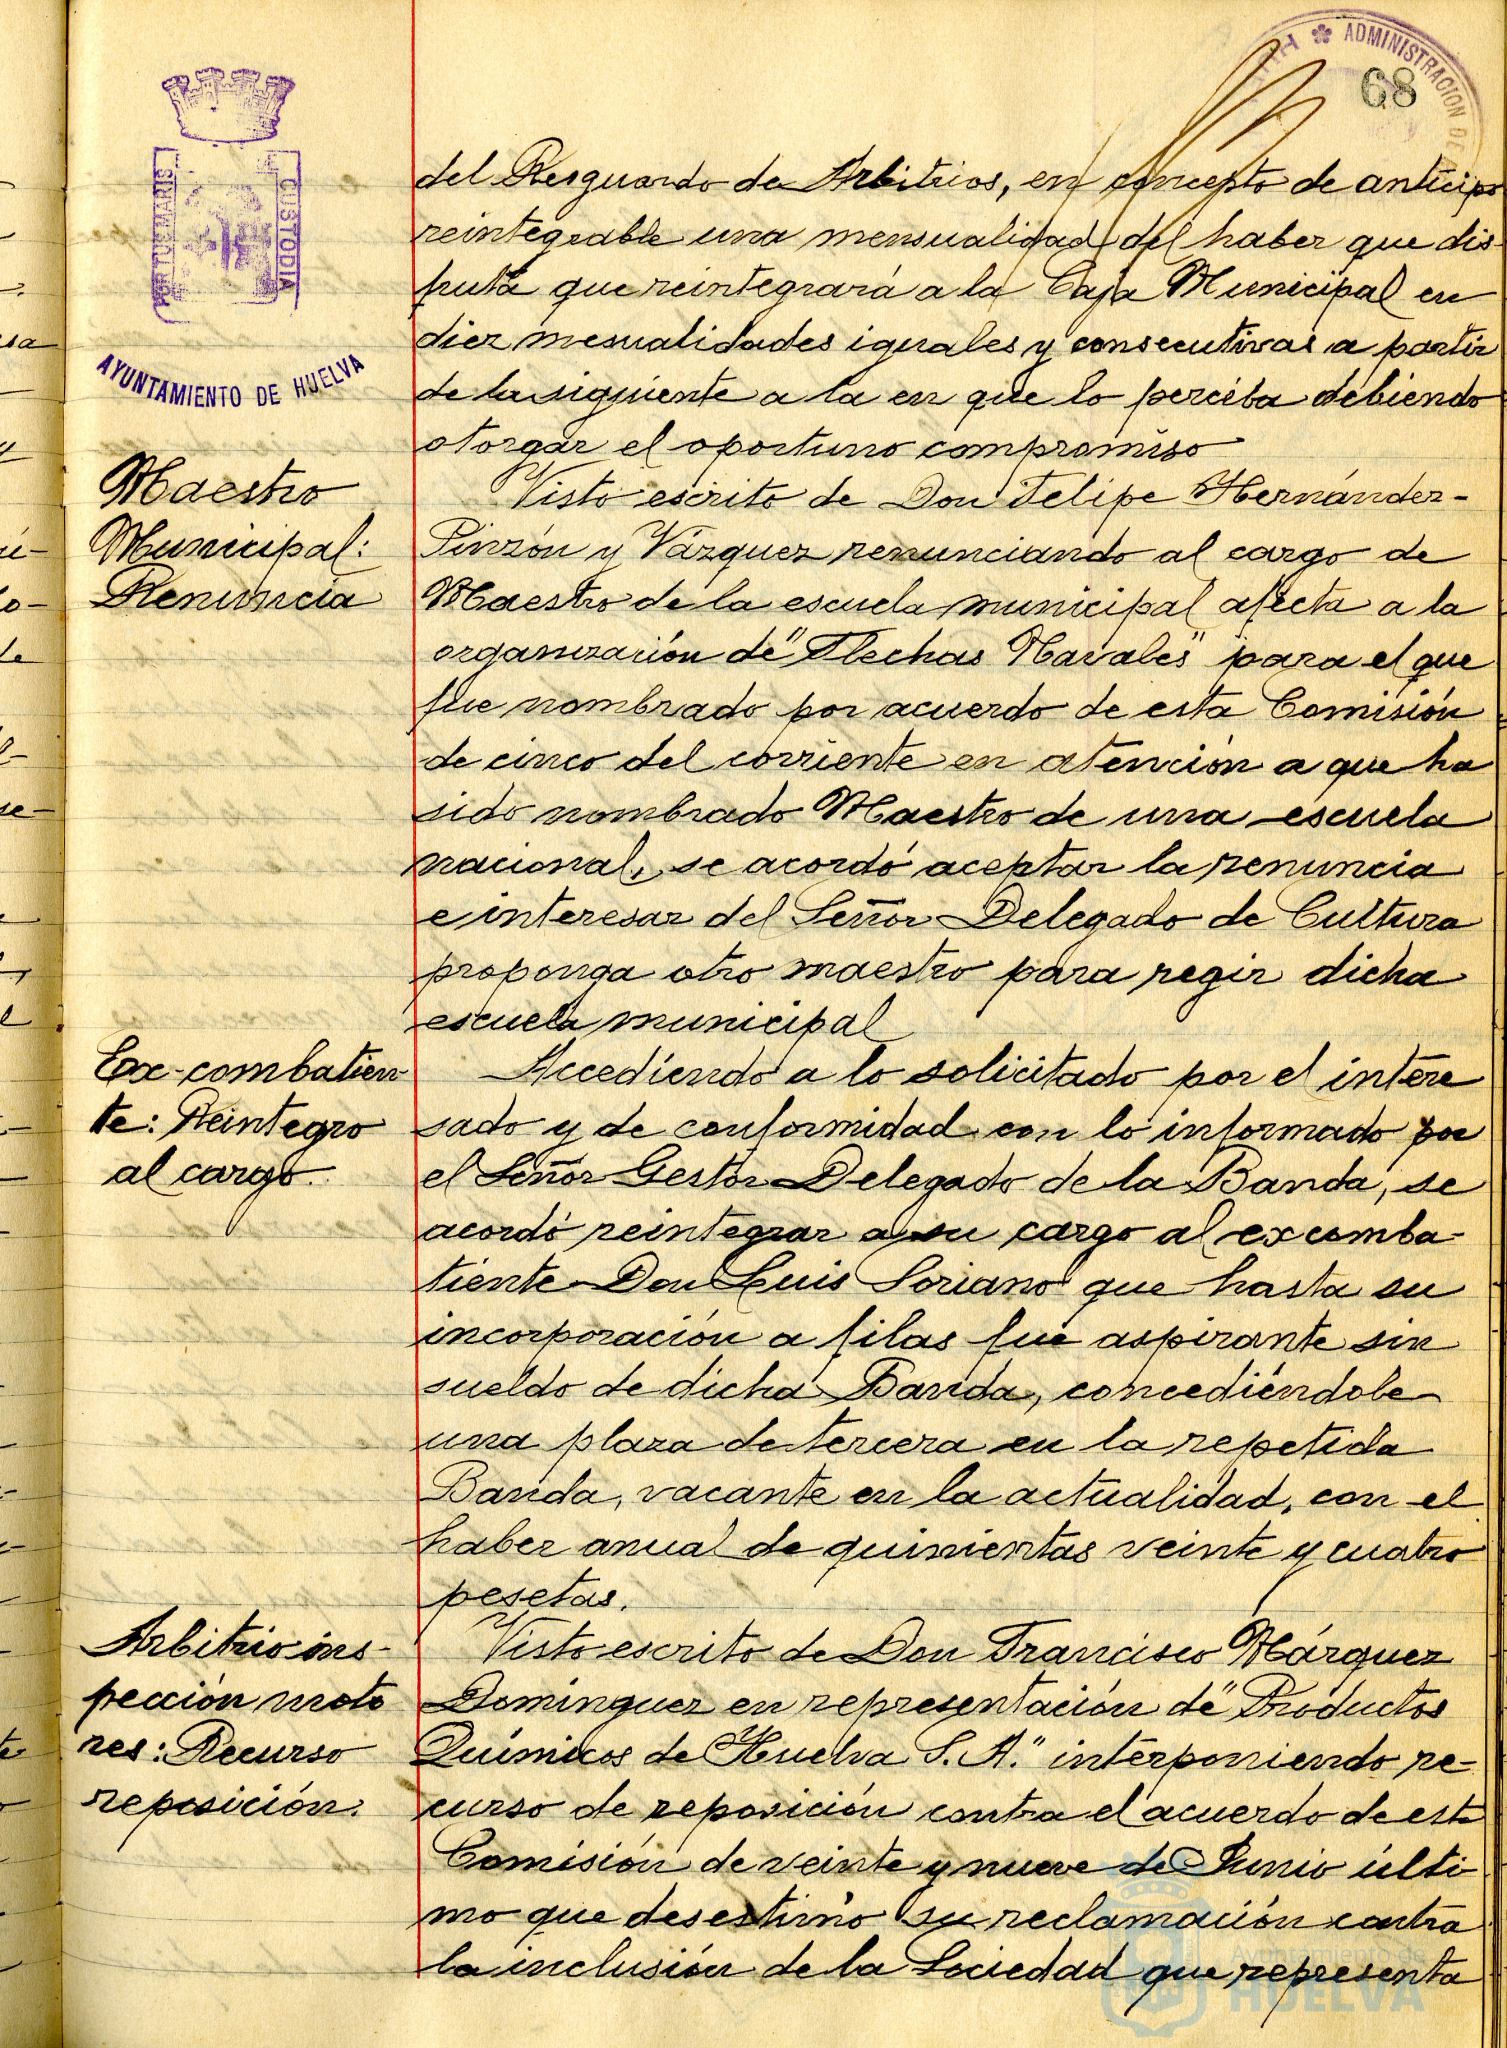 ADMINISTRACION DE
68
PORTUS MARIS
CUSTODIA
AYUNTAMIENTO DE HUELVA
del Resguardo de Arbitrios, en concepto de anticipo
reintegrable una mensualidad del haber que dis-
fruta que reintegrará a la Caja Municipal en
diez mesualidades iguales y consecutivas a partir
de la siguiente a la en que lo perciba debiendo
otorgar el oportuno compromiso
Maestro
Municipal:
Renuncia
Visto escrito de Don Felipe Hernández-
Pinzón y Vázquez renunciando al cargo de
Maestro de la escuela municipal afecta a la
organización de "Flechas Navales" para el que
fue nombrado por acuerdo de esta Comisión
de cinco del corriente en atención a que ha
sido nombrado Maestro de una escuela
nacional, se acordó aceptar la renuncia
e interesar del Señor Delegado de Cultura
proponga otro maestro para regir dicha
escuela municipal
Ex-combatien-
te: Reintegro
al cargo.
Accediendo a lo solicitado por el intere
sado y de conformidad con lo informado por
el Señor Gestor Delegado de la Banda, se
acordó reintegrar a su cargo al excomba-
tiente Don Luis Soriano que hasta su
incorporación a filas fué aspirante sin
sueldo de dicha Banda, concediéndole
una plaza de tercera en la repetida
Banda, vacante en la actualidad, con el
haber anual de quinientas veinte y cuatro
pesetas.
Arbitrio ins-
pección moto
res: Recurso
reposición.
Visto escrito de Don Francisco Márquez
Domínguez en representación de "Productos
Químicos de Huelva S.A." interponiendo re-
curso de reposición contra el acuerdo de esta
Comisión de veinte y nueve de Junio últi-
mo que desestimó su reclamación contra
la inclusión de la Sociedad que representa
Ayuntamiento de
HUELVA